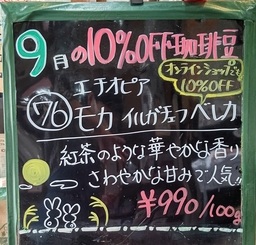 9月の10%OFF珈琲豆
オンラインショップでも
10%OFF
エチオピア
76 モカ イルガチェフ ベレカ
紅茶のような華やかな香り
さわやかな甘みで人気!!
¥990/100g